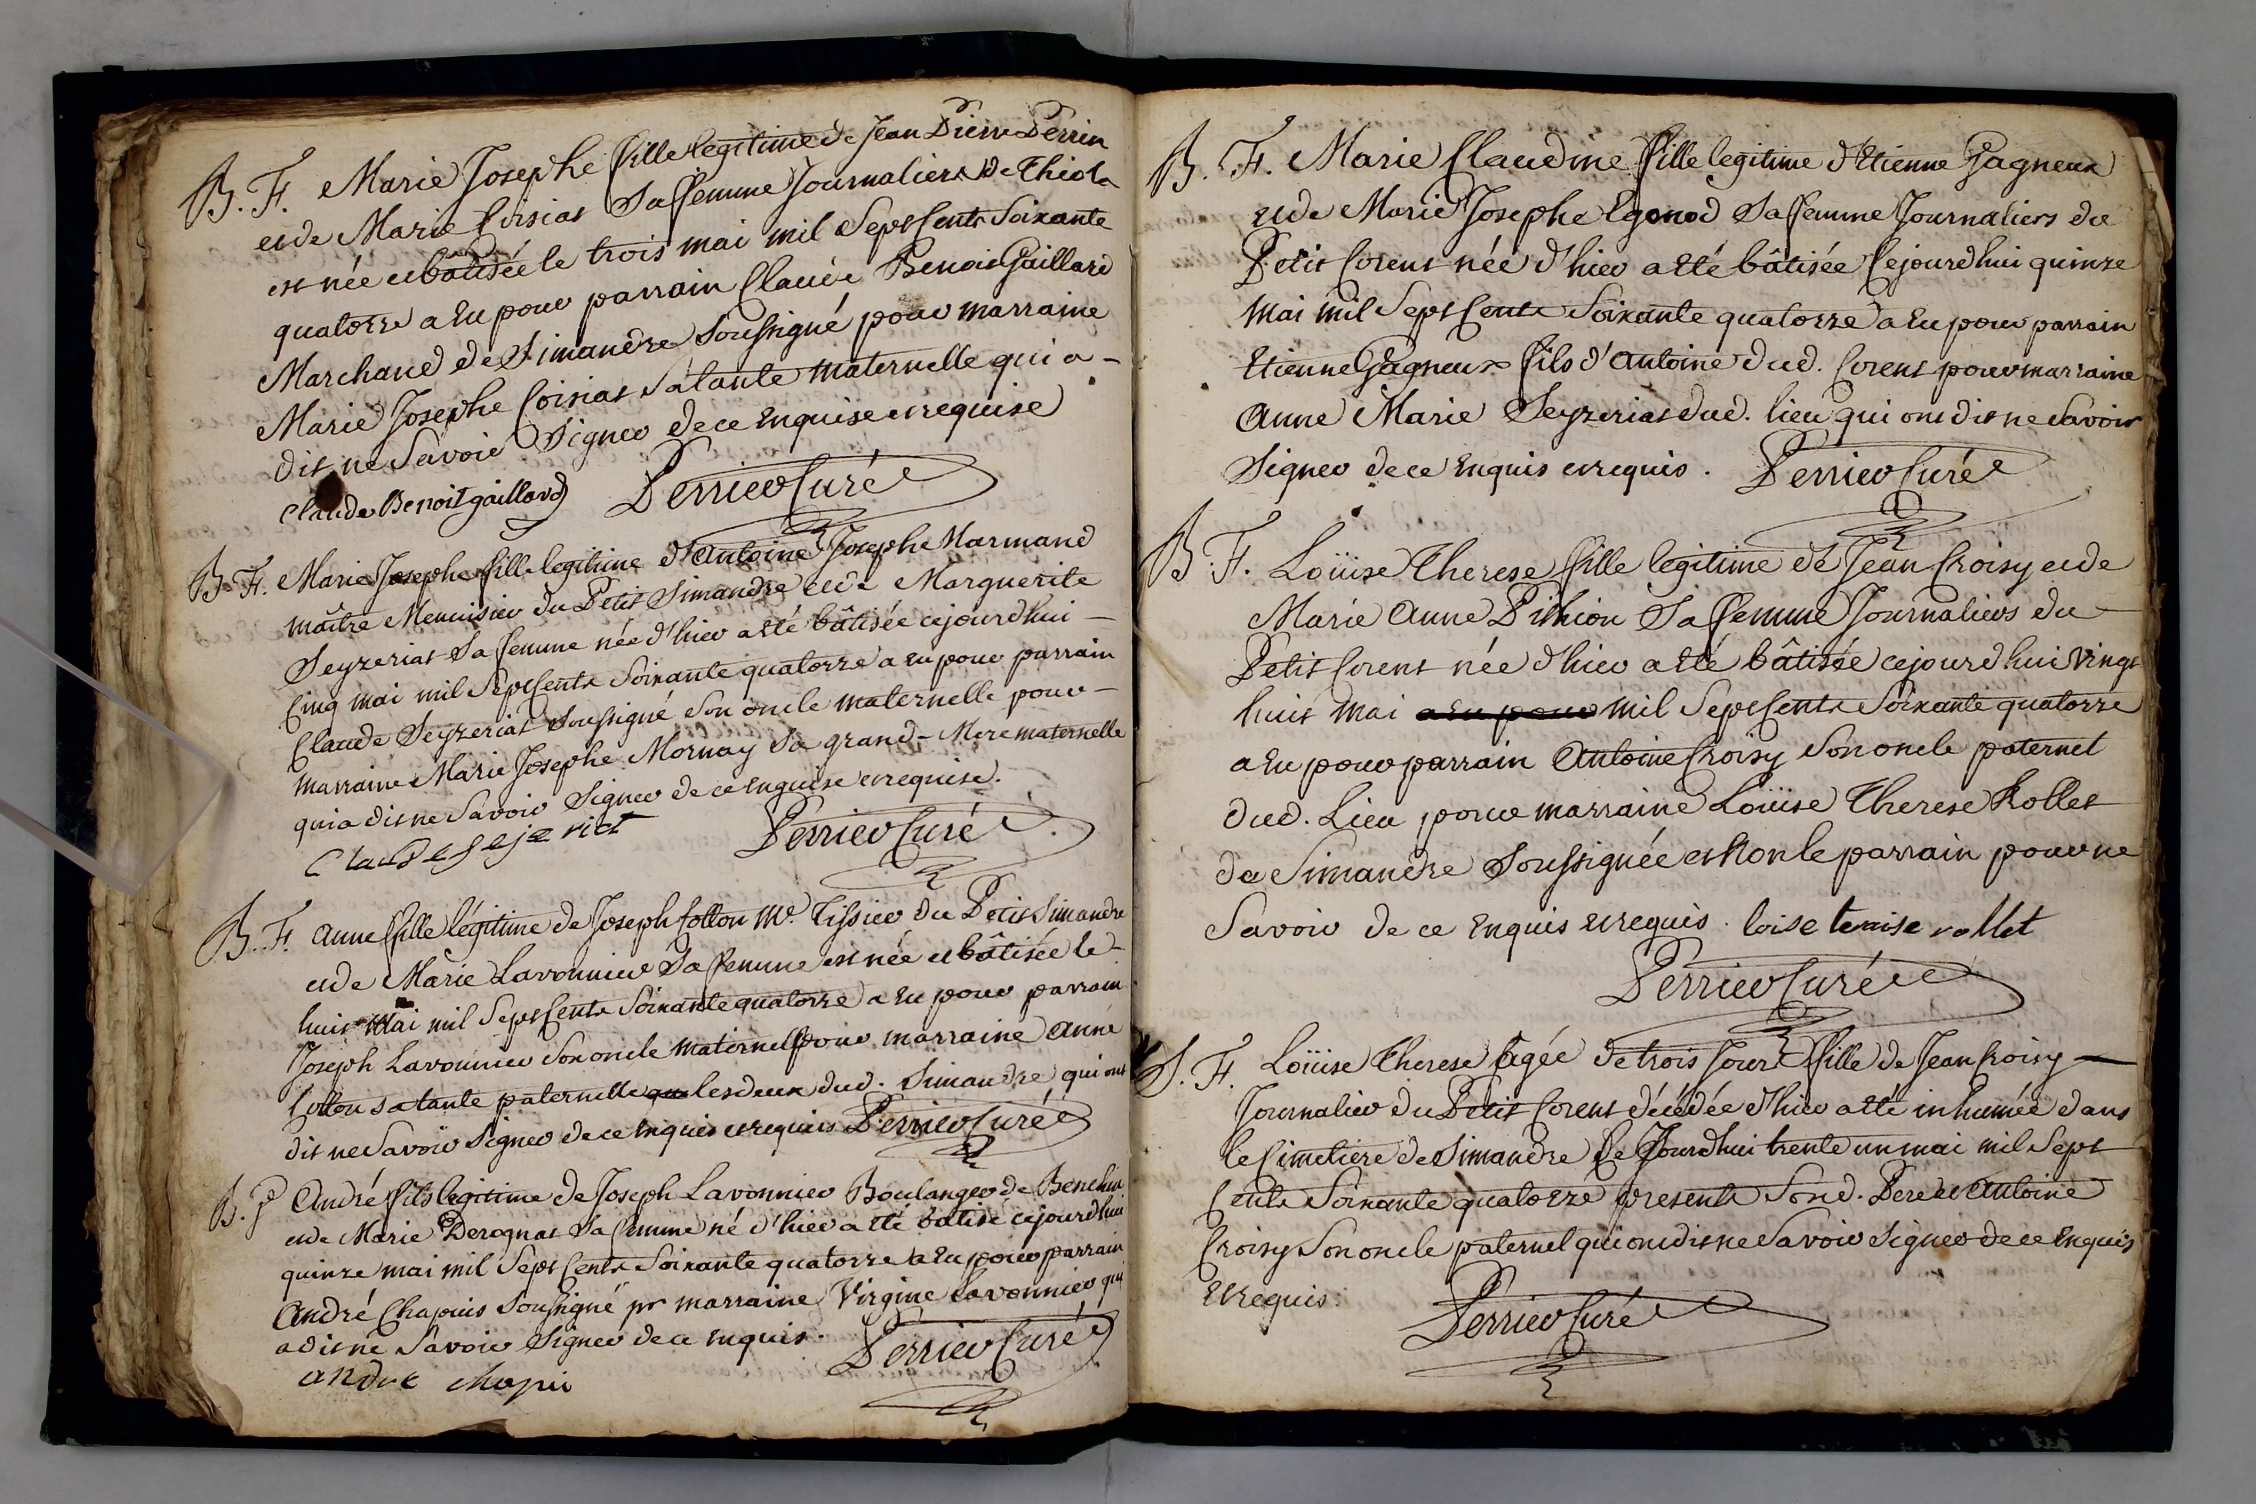 B. F. Marie Josephe fille legitime de Jean Pierre Perrin
et de Marie Coisiat Sa femme Journaliers de Thiola
est née et bâtisée le trois mai mil Sept Cents Soixante
quatorze a Eu pour parrain Claude Benoit Gaillard
Marchand de Simandre Soussigné pour marraine
Marie Josephe Coisiat Sa tante maternelle qui a -
dit ne Savoir Signer de ce Enquise et requise
Claude Benoit gaillard Perrier Curé
B. F. Marie Josephe fille legitime d'Antoine Josephe Marmand
maître Menuisier du Petit Simandre et de Marguerite
Seyzeriat Sa femme née d'hier a été bâtisée cejourdhui -
Cinq mai mil Sept Cents Soixante quatorze a Eu pour parrain
Claude Seyzeriat Soussigné Son oncle maternelle pour -
marraine Marie Josephe Mornay Sa grand-Mere maternelle
qui a dit ne Savoir Signer de ce Enquise et requise.
Claude sejeriat Perrier Curé
B. F. Anne fille légitime de Joseph Cotton Me. Tissier du Petit Simandre
et de Marie Lavonnier Sa femme est née et bâtisée le -
huit Mai mil Sept Cents Soixante quatorze a Eu pour parrain
Joseph Lavonnier Son oncle maternel pour marraine Anne
Cotton Sa tante paternelle les deux dud. Simandre qui ont
dit ne Savoir Signer de ce Enquis et requis Perrier Curé
B. André fils legitime de Joseph Lavonnier Boulanger de
et de Marie Derognat Sa femme né d'hier a été bâtisé cejourdhui
quinze mai mil Sept Cents Soixante quatorze a Eu pour parrain
André Chapuis Soussigné pr marraine Virgine Lavonnier qui
a dit ne Savoir Signer de ce Enquis. Perrier Curé
andre chapui
B. F. Marie Claudine fille legitime d'Etienne Gagneux
et de Marie Josephe Egonod Sa femme Journaliers du
Petit Corent née d'hier a Eté bâtisée Cejourdhui quinze
mai mil Sept Cents Soixante quatorze a Eu pour parrain
Etienne Gagneux fils d'Antoine dud. Corent pour marraine
Anne Marie Seyzeriat dud. lieu qui ont dit ne Savoir
Signer de ce Enquis et requis. Perrier Curé
B. F. Loüise Therese fille legitime de Jean Croisy et de
Marie Anne Pithion Sa femme Journaliers du -
Petit Corent née d'hier a Eté bâtisée cejourdhui vingt
huit Mai a Eu pour mil Sept Cents Soixante quatorze
a Eu pour parrain Antoine Croisy Son oncle paternel
dud. Lieu pour marraine Loüise Therese Rollet
de Simandre Soussignée et Non le parrain pour ne
Savoir de ce Enquis et requis. loise teraise rollet
Perrier Curé
S. F. Loüise Therese agée de trois Jours fille de Jean Croisy -
Journalier du Petit Corent décédée d'hier a été inhumée dans
le Cimetiere de Simandre Ce Jourdhui trente un mai mil Sept
Cents Soixante quatorze presents Sond. Pere et Antoine
Croisy Son oncle paternel qui ont dit ne Savoir Signer de ce Enquis
et requis. Perrier Curé